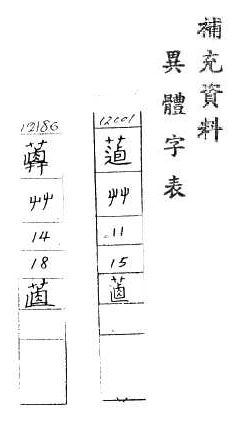 補充資料
異體字表
12001
蓪
艸
11
15
𦯉
12186
艸
14
18